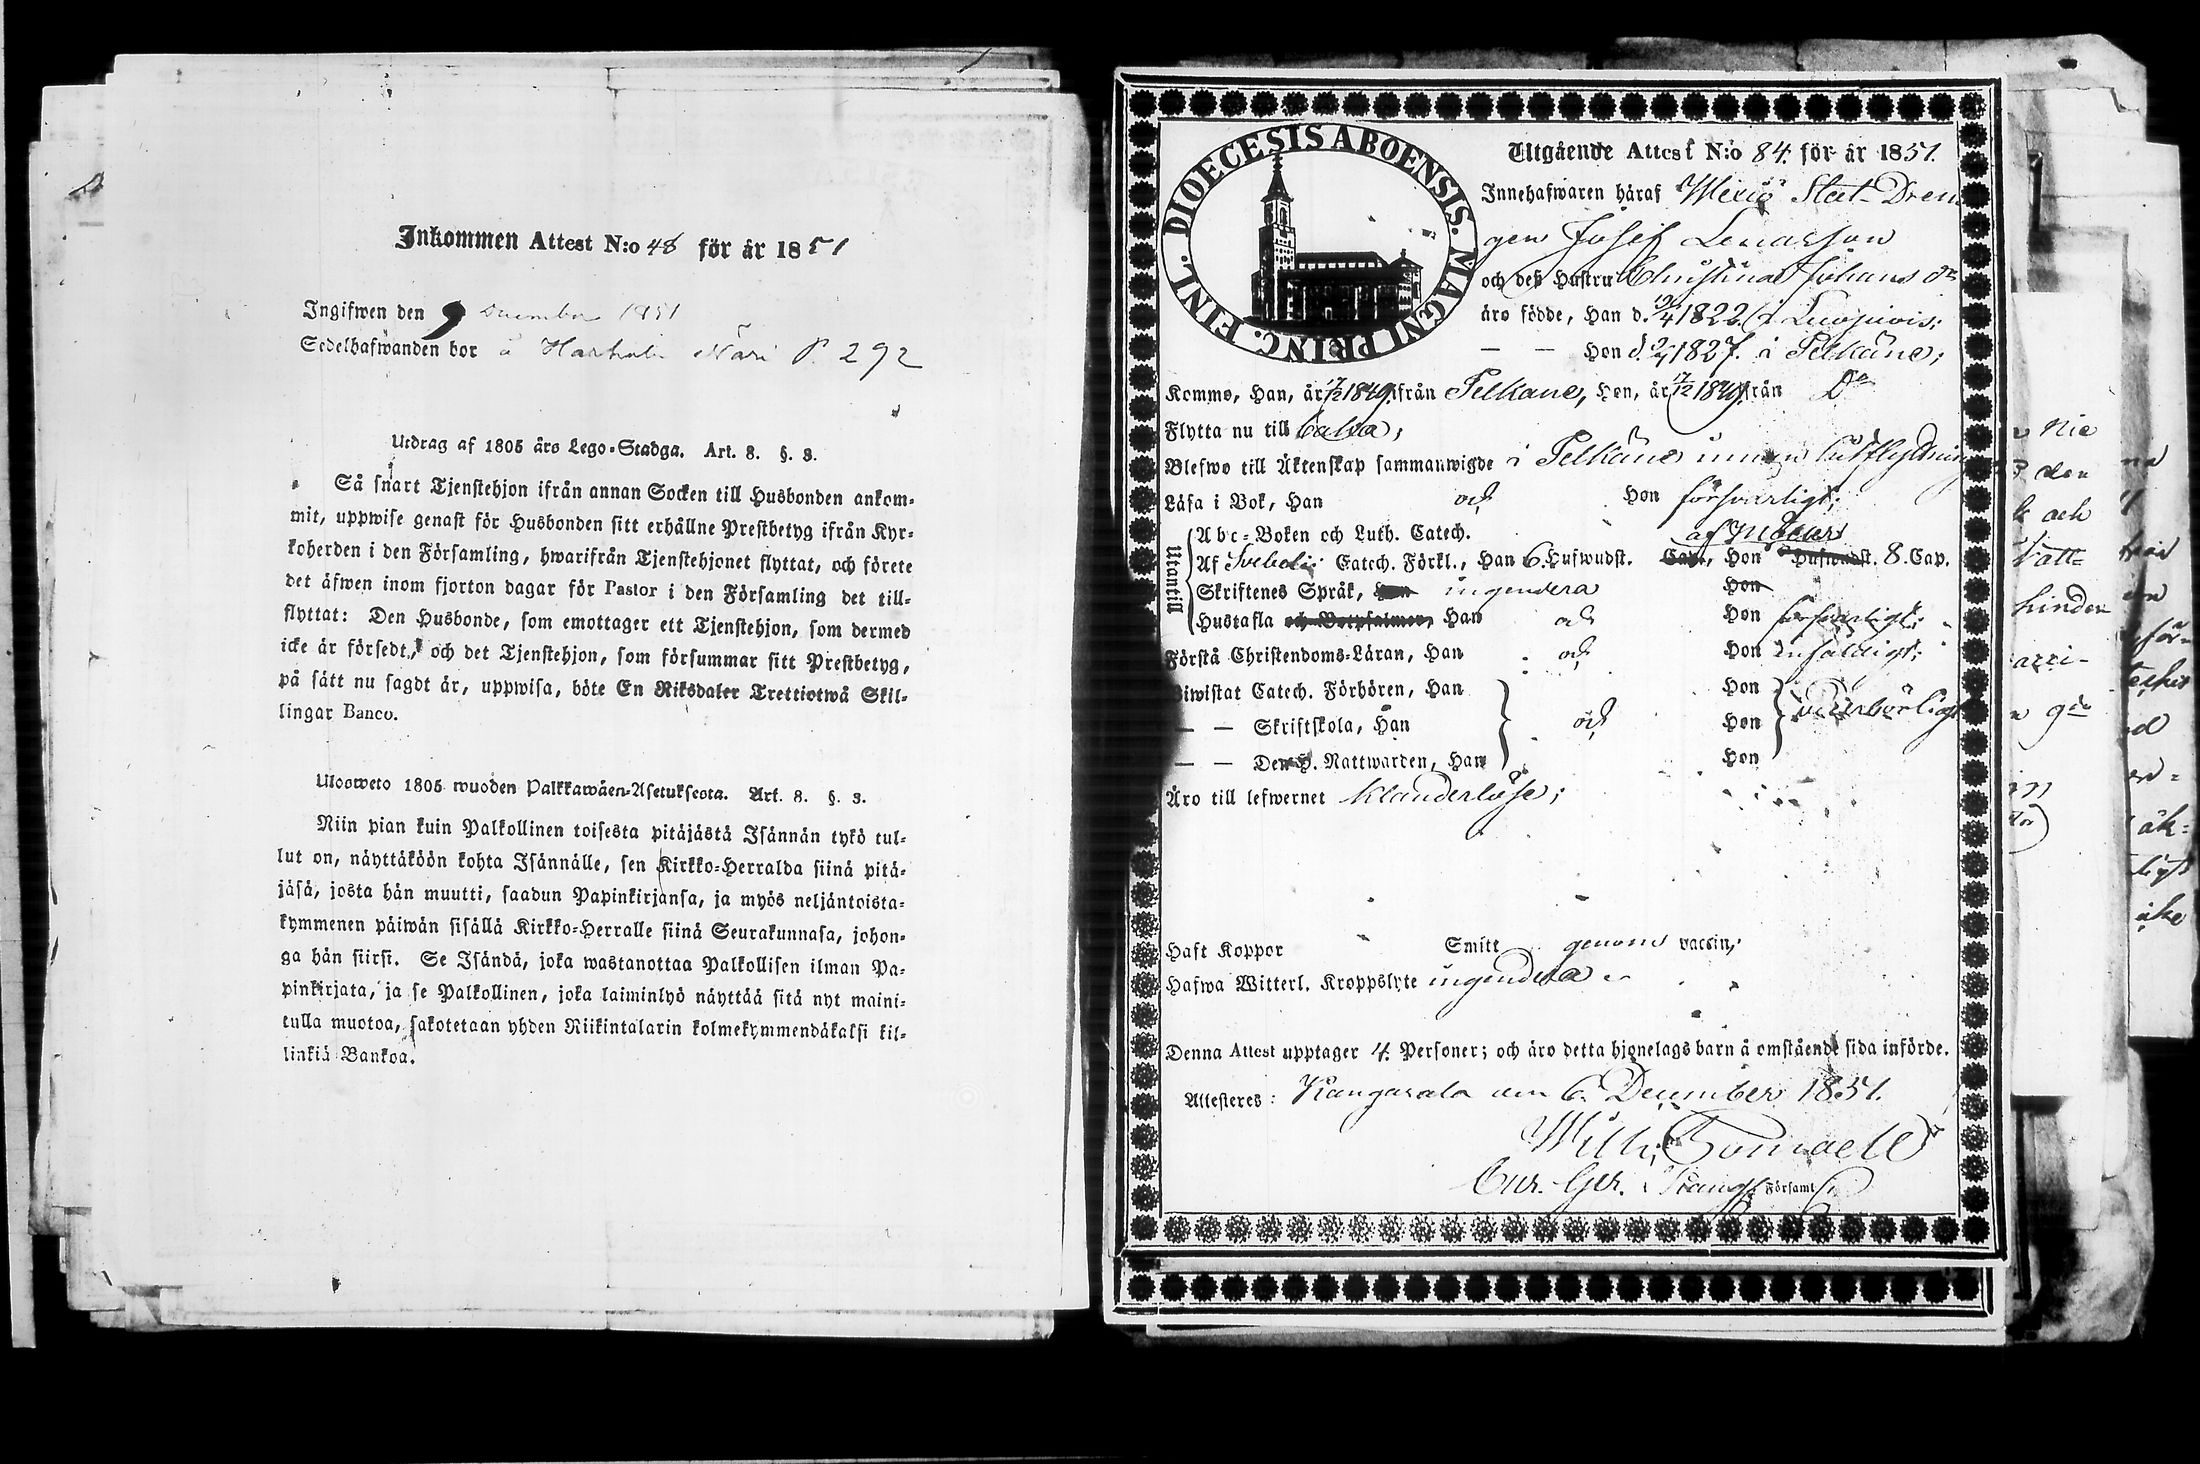 Inkommen Attest N:o 48 för år 1851
Ingifwen den 9 December 1851
Sedelhafwanden bor å Harhala Näri P. 292
Utdrag af 1805 års Lego-Stadga. Art. 8. §. 3.
Så snart Tjenstehjon ifrån annan Socken till Husbonden ankom-
mit, uppwise genast för Husbonden sitt erhållne Prestbetyg ifrån Kyr-
koherden i den Församling, hwarifrån Tjenstehjonet flyttat, och förete
det äfwen inom fjorton dagar för Pastor i den Församling det till-
flyttat: Den Husbonde, som emottager ett Tjenstehjon, som dermed
icke är försedt, och det Tjenstehjon, som försummar sitt Prestbetyg,
på sätt nu sagdt är, uppwisa, böte En Riksdaler Trettiotwå Skil-
lingar Banco.
Ulosweto 1805 wuoden Palkkawäen-Asetuksesta. Art. 8. §. 3.
Niin pian kuin Palkollinen toisesta pitäjästä Isännän tykö tul-
lut on, näyttäköön kohta Isännälle, sen Kirkko-Herralda siinä pitä-
jäsä, josta hän muutti, saadun Papinkirjansa, ja myös neljäntoista-
kymmenen päiwän sisällä Kirkko-Herralle siinä Seurakunnasa, johon-
ga hän siirsi. Se Isändä, joka wastanottaa Palkollisen ilman Pa-
pinkirjata, ja se Palkollinen, joka laiminlyö näyttää sitä nyt maini-
tulla muotoa, sakotetaan yhden Riikintalarin kolmekymmendäkaksi kil-
linkiä Bankoa.
DIOECESIS ABOENSIS. MAGNI PRINC. FINL.
Utgående Attest N:o 84. för år 1851.
Innehafwaren häraf Stat-Dren
gen Josef
och deß Hustru Christina Johans dr
äro födde, Han d. 19/4 1822. i
— — Hon d. 1827. i Pelkäne;
Komme, Han, år 17/12 1849. från Pelkäne, Hon, år 17/12 1849. från Do
Flytta nu till
Blefwo till Äktenskap sammanwigde i Pelkäne innan
Läsa i Bok, Han och Hon försvarligt;
Utantill
Abc-Boken och Luth. Catech.
Af Svebelii Catech. Förkl., Han 6. Hufwudst. Cap., Hon Hufwudst. 8. Cap.
Skriftenes Språk, Han ingendera Hon
Hustafla och Botpsalmer, Han och Hon försvarligt;
Förstå Christendoms-Läran, Han och Hon enfaldigt;
Biwistat Catech. Förhören, Han Hon
— — Skriftskola, Han och Hon vederbörligt
— — Den H. Nattwarden, Han Hon
Äro till lefwernet klanderlöse;
Haft Koppor Smitt genom vaccin;
Hafwa Witterl. Kroppslyte ingendera
Denna Attest upptager 4. Personer; och äro detta hjonelags barn å omstående sida införde.
Attesteres: Kangasala den 6. December 1851.
Cur. Ger. i Kang: Församl